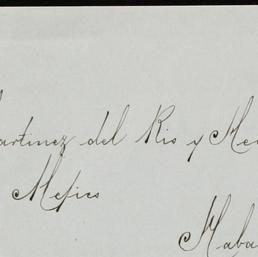 artinez del Rio y Me
Mejico
Haba